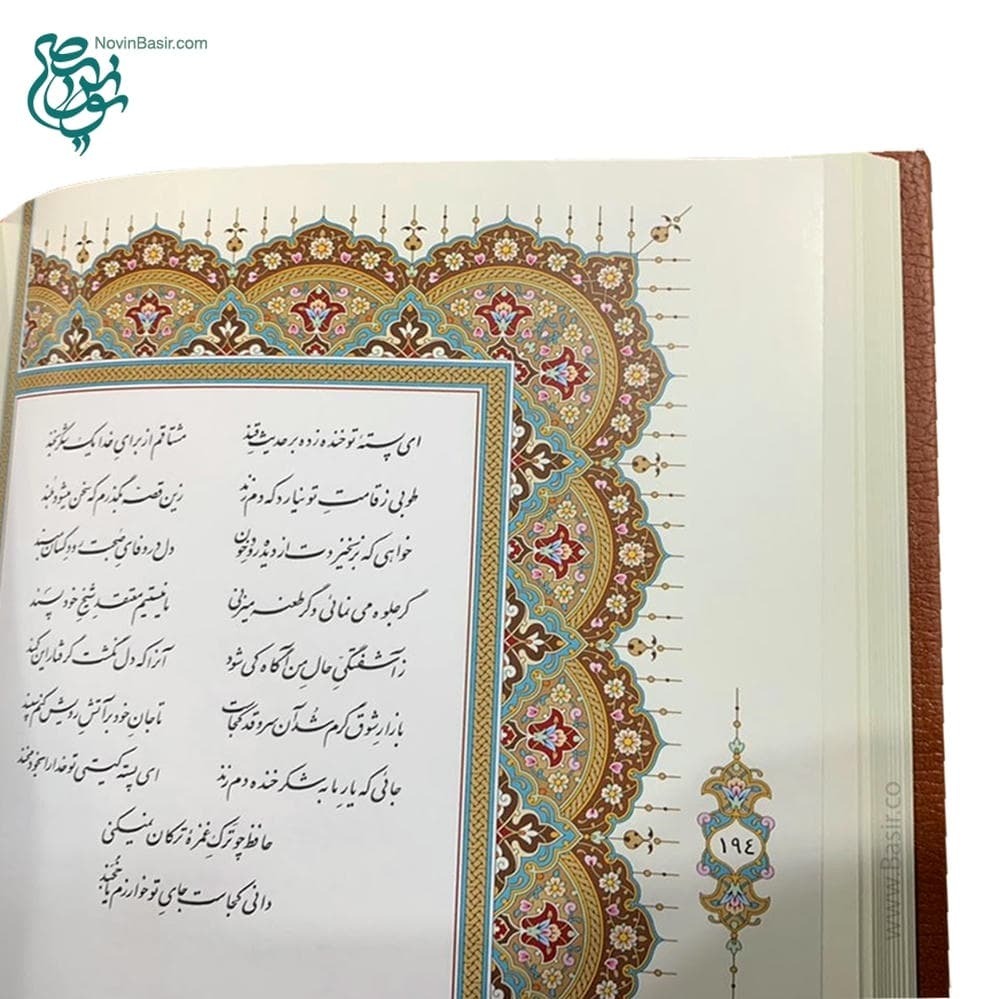 NovinBasir.com
ای پستهٔ تو خنده زده بر حدیث قند مشتاقم از برای خدا یک شکر بخند
طوبی ز قامتِ تو نیارد که دم زند زین قصّه بگذرم که سخن میشود بلند
خواهی که بر نخیزدت از دیده رودِ خون دل در وفای صحبتِ رودِ کسان مبند
گر جلوه می نمائی و گر طعنه میزنی ما نیستیم معتقدِ شیخِ خود پسند
ز آشفتگیِ حالِ من آگاه کی شود آنرا که دل نگشت گرفتار این کمند
بازارِ شوق گرم شد آن سرو قد کجاست تا جانِ خود بر آتشِ رویش کنم سپند
جائی که یارِ ما به شکر خنده دم زند ای پسته کیستی تو خدا را بخود مخند
حافظ چو ترکِ غمزهٔ ترکان نمیکنی
دانی کجاست جایِ تو خوارزم یا خجند
١٩٤
www.Basir.co